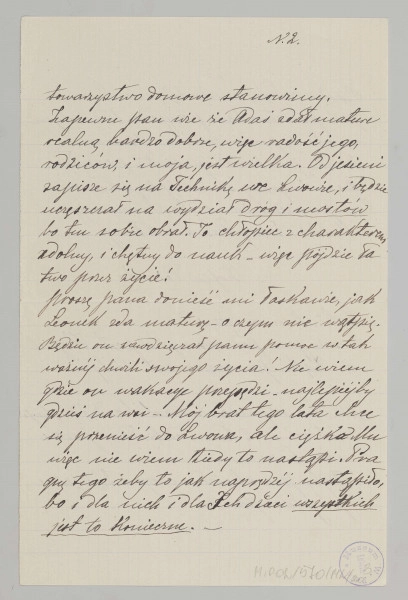 N. 2.
towarzystwo domowe stanowimy.
Zapewne pan wie że Adaś zdał maturę
realną bardzo dobrze, więc radość jego,
rodziców, i moja, jest wielka. Od jesieni
zapisze się na Technikę we Lwowie, i będzie
uczęszczał na wydział dróg i mostów
bo tu sobie obrał. To chłopiec z charakterem,
zdolny, i chętny do nauki – więc pójdzie ła
two przez życie!
Proszę pana donieść mi łaskawie, jak
Leonek zda maturę – o czym nie wątpię.
Będzie on zawdzięczał panu pomoc w tak
ważnej chwili swojego życia! Nie wiem
gdzie on wakacye przepędzi – najlepiej by
gdzieś na wsi –! Mój brat tego lata chce
się przenieść do Lwowa, ale ciężko Mu
więc nie wiem kiedy to nastąpi. Pra
gnę tego żeby to jak najprędzej nastąpiło,
bo i dla nich i dla Ich dzieci wszystkich
jest to konieczne. –